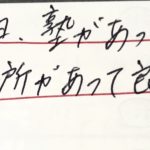 日、塾があっ
所があって良